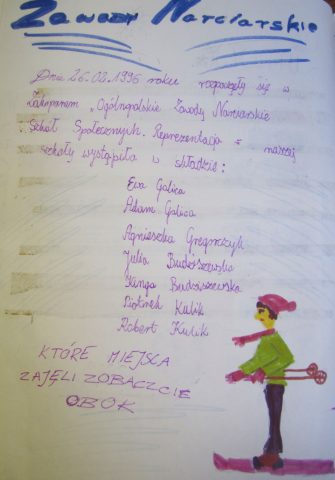 Zawody Narciarskie
Dnia 26.02.1996 roku rozpoczęły się w
Zakopanem „Ogólnopolskie Zawody Narciarskie
Szkół Społecznych. Reprezentacja z naszej
szkoły wystąpiła w składzie:
Ewa Galica
Adam Galica
Agnieszka Gregorczyk
Julia Budziszewska
Kinga Budziszewska
Piotrek Kulik
Robert Kulik
KTÓRE MIEJSCA
ZAJĘLI ZOBACZCIE
OBOK